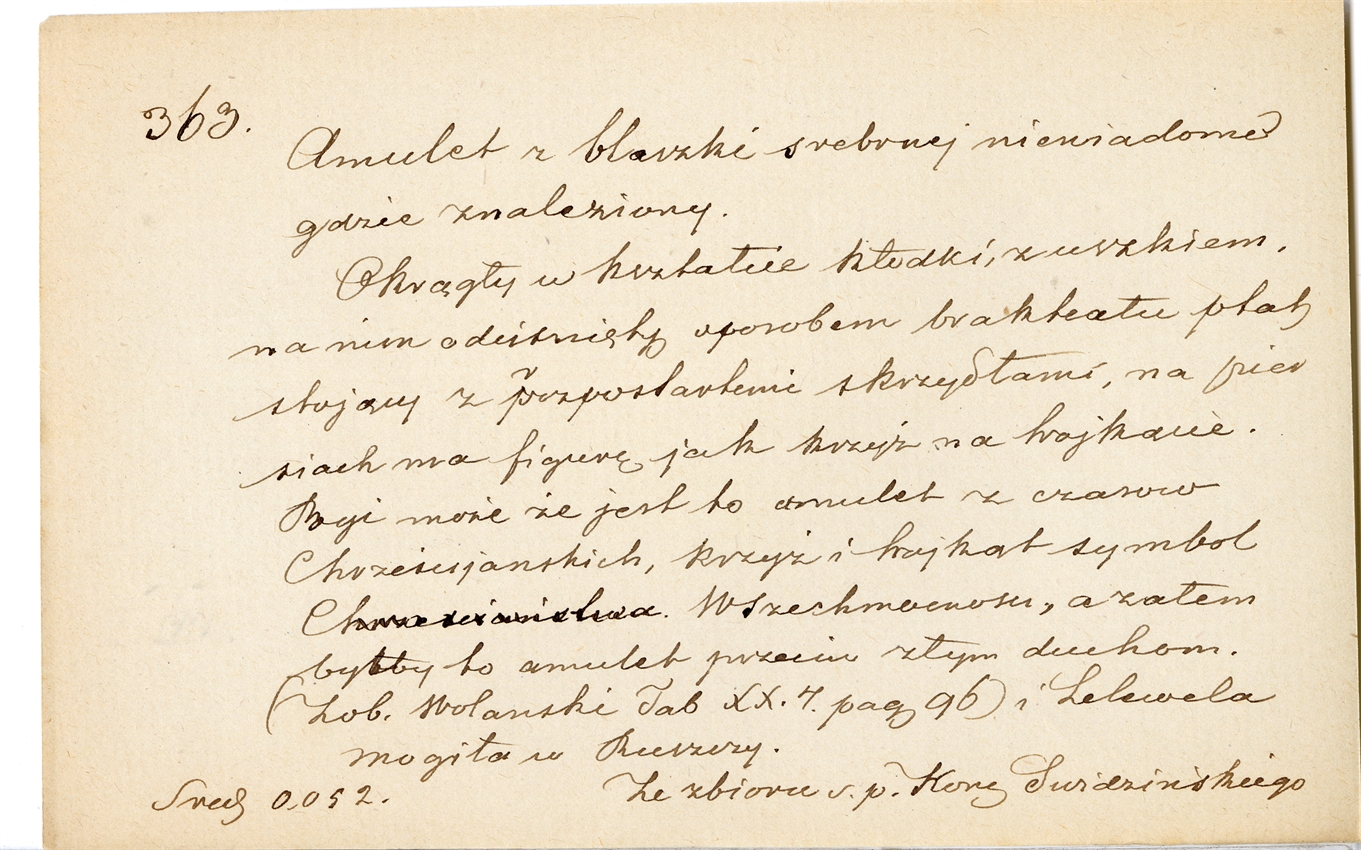 363.
Amulet z blaszki srebrnej niewiadome
gdzie znaleziony.
Okrągły w kształcie kłodki, z uszkiem,
na nim odciśnięty sposobem brakteatu ptak
stojący z rozpostartemi skrzydłami, na pier
siach ma figurę jak krzyż na trojkącie.
Być może że jest to amulet z czasow
Chrześcijanskich, krzyż i trojkąt symbol
Wszechmocnosci, a zatem
byłby to amulet przeciw złym duchom.
(Zob. Wolanski Tab XX. 7. pag 96) i Lelewela
mogiła w Ruszczy.
Sred 0,052. Ze zbioru s. p. Kon Swidzińskiego